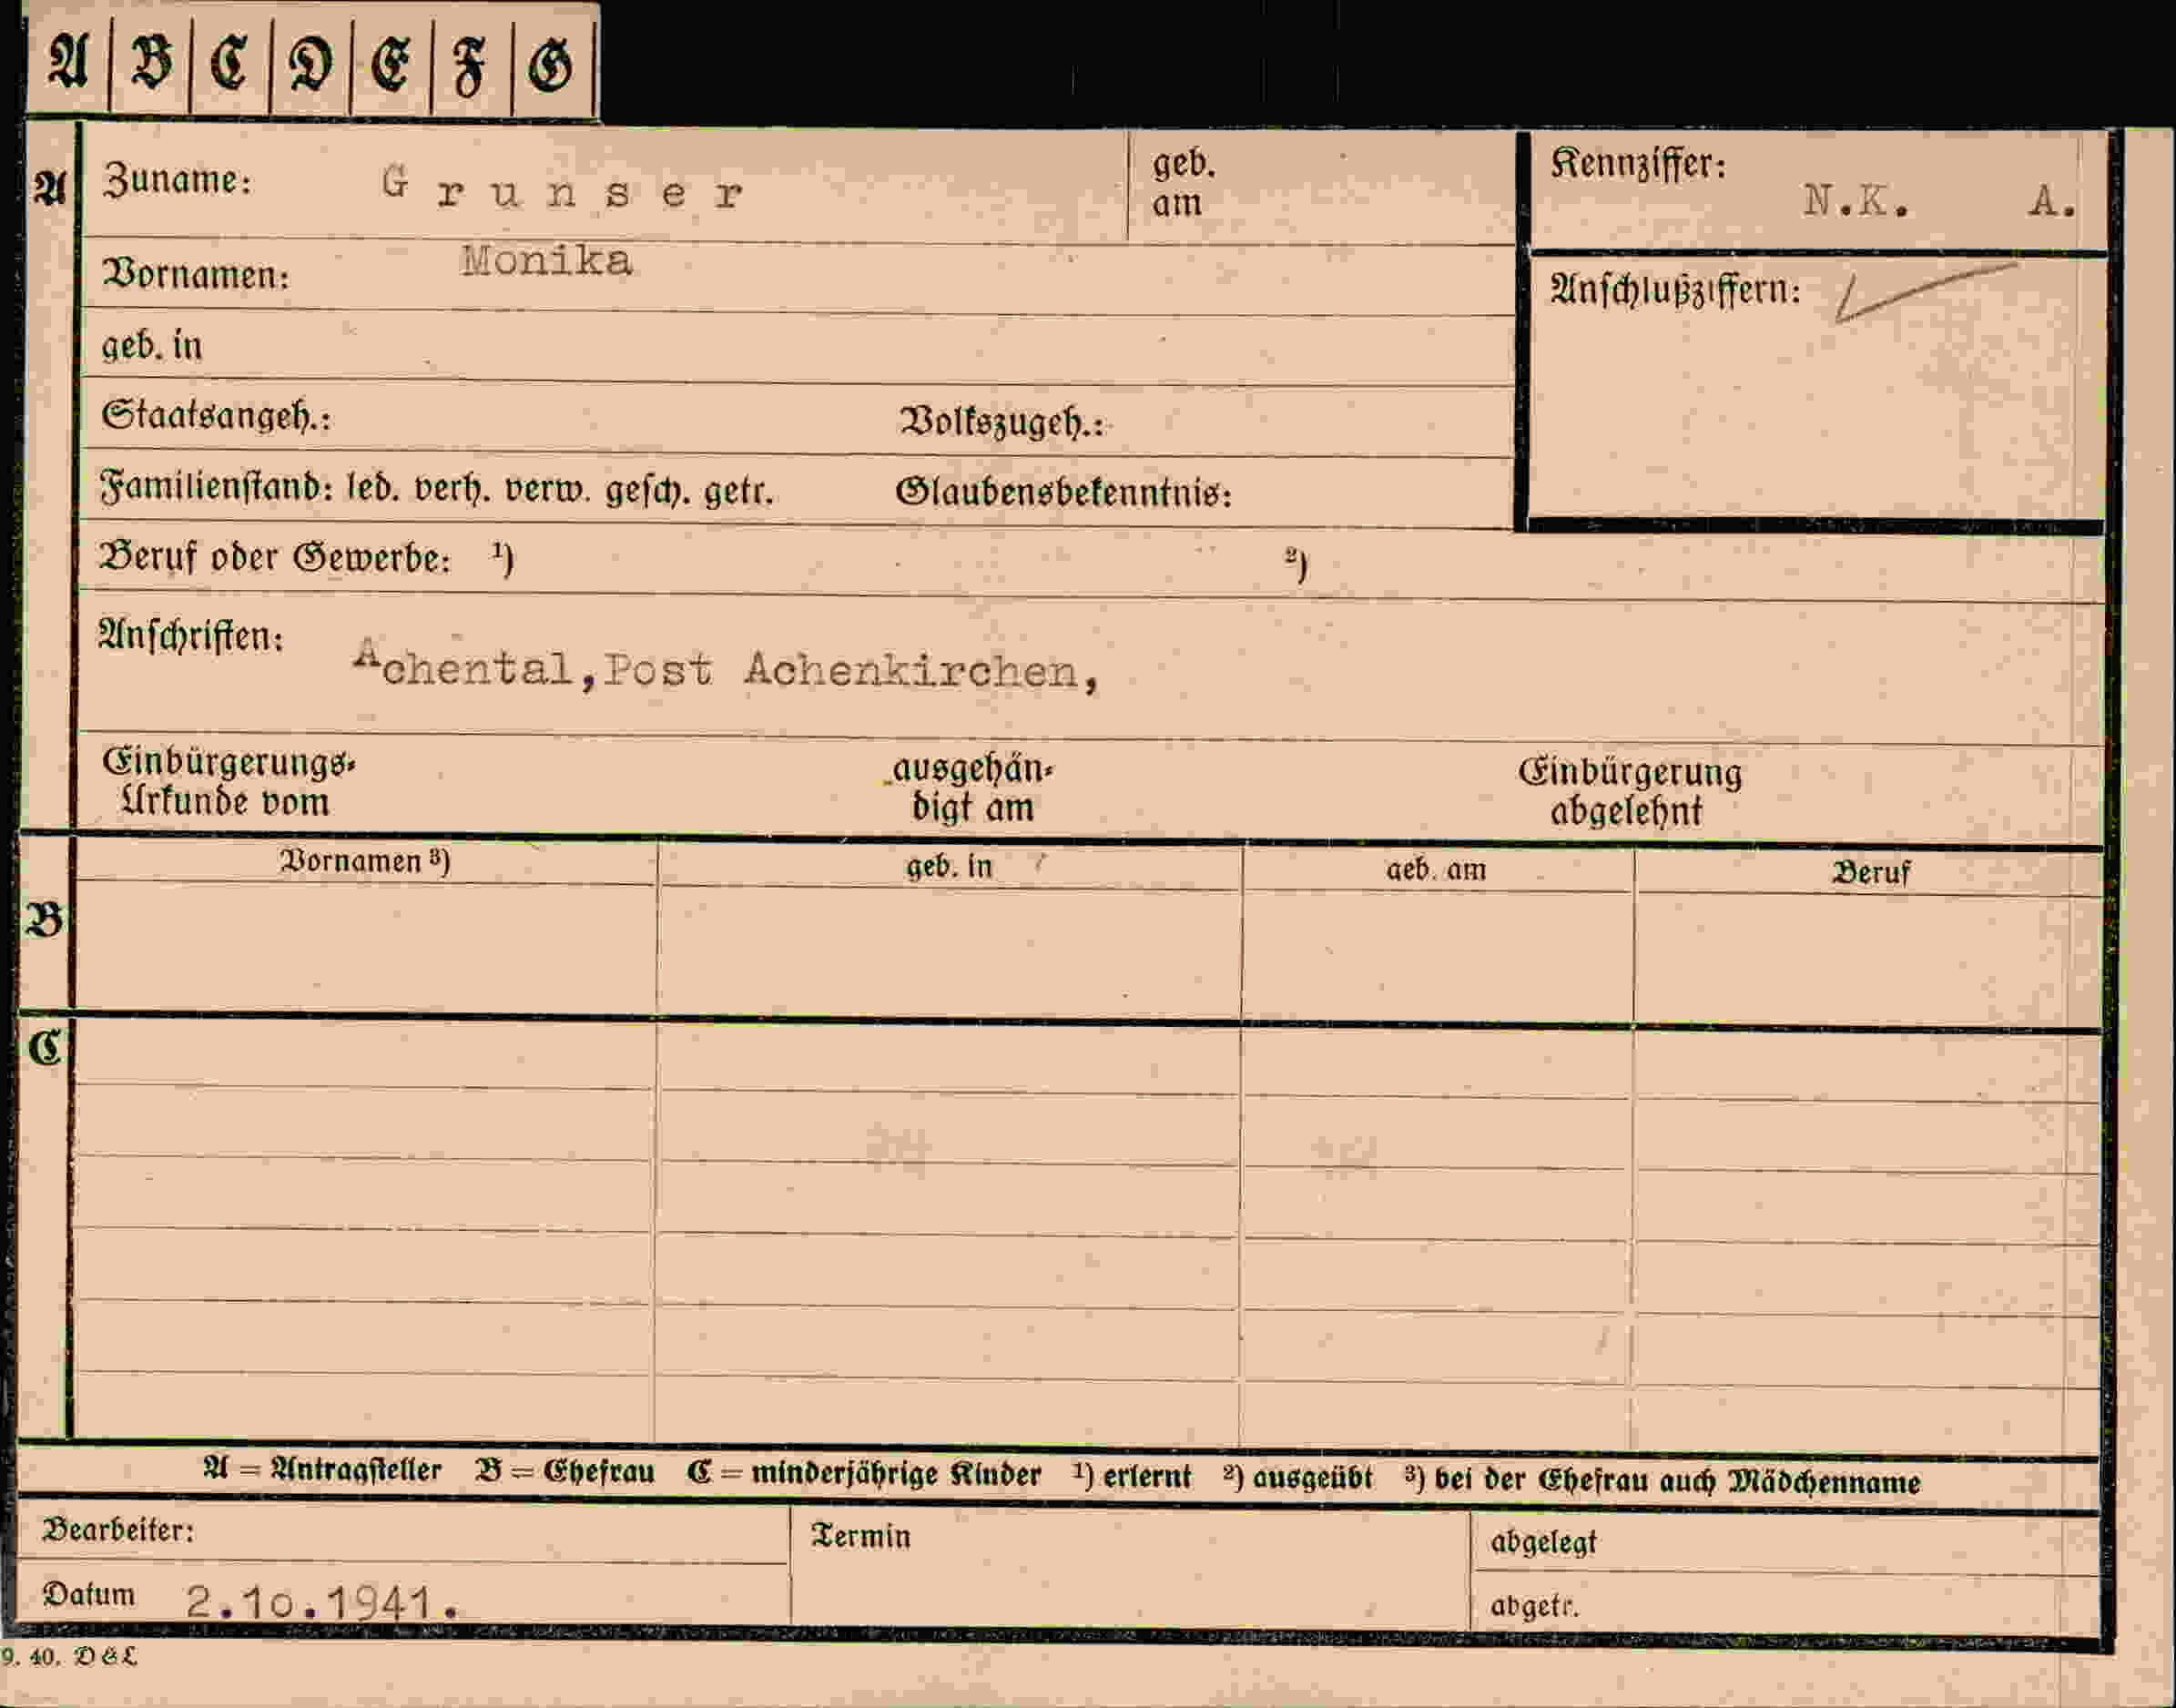 A B C D E F G
A Zuname: Grunser geb. am Kennziffer: N.K. A.
Vornamen: Monika Anschlußziffern:
geb. in
Staatsangeh.: Volkszugeh.:
Familienstand: led. verh. verw. gesch. getr. Glaubensbekenntnis:
Beruf oder Gewerbe: ¹) ²)
Anschriften: Achental,Post Achenkirchen,
Einbürgerungs- ausgehän- Einbürgerung
Urkunde vom digt am abgelehnt
Vornamen ³) geb. in geb. am Beruf
B
C
A = Antragsteller B = Ehefrau C = minderjährige Kinder ¹) erlernt ²) ausgeübt ³) bei der Ehefrau auch Mädchenname
Bearbeiter: Termin abgelegt
Datum 2.10.1941. abgetr.
9. 40. D&L